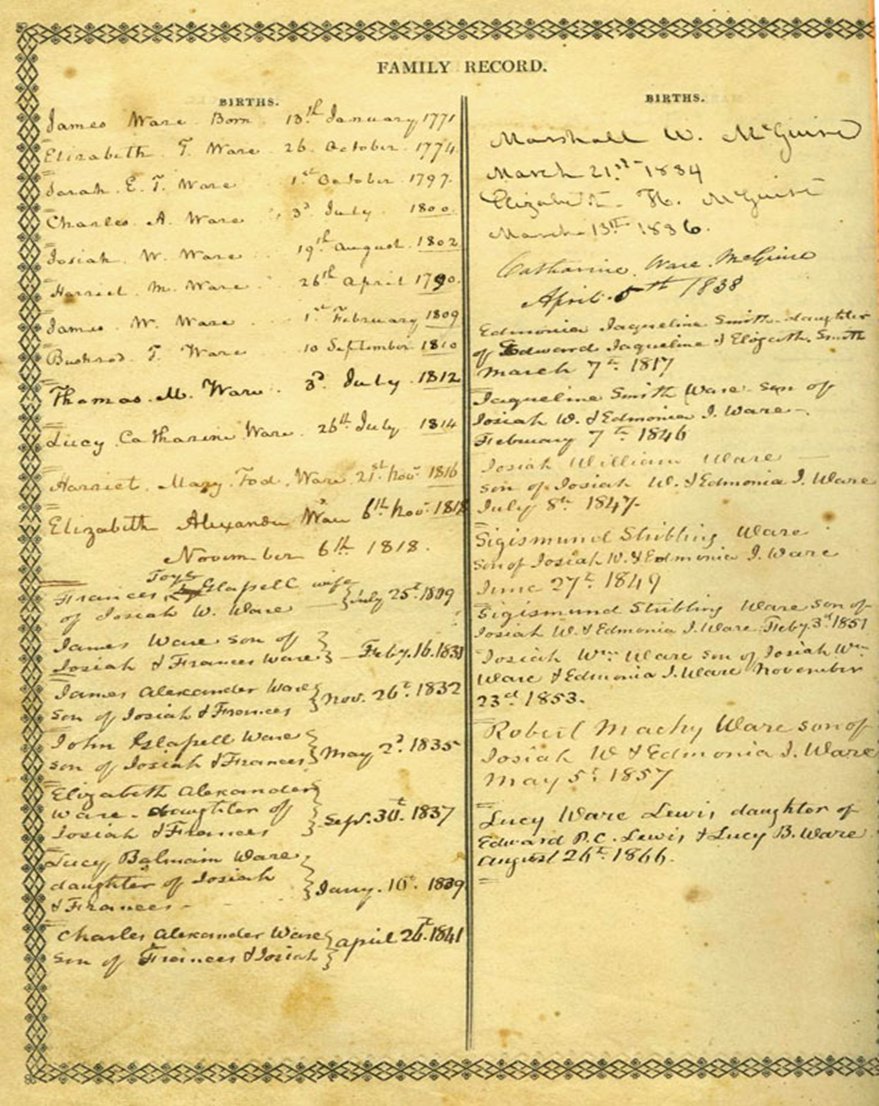 FAMILY RECORD.
BIRTHS.
James Ware Born 13th January 1771
Elizabeth T. Ware 26 October 1774
Sarah E. T. Ware 1st October 1797
Charles A. Ware 3d July 1800
Josiah W. Ware 19th August 1802
Harriet M. Ware 26th April
James W. Ware 1st February 1809
Bushrod T. Ware 10 September 1810
Thomas M. Ware 3d July 1812
Lucy Catharine Ware 26th July 1814
Harriet Mary Tod Ware 21st Novr 1816
Elizabeth Alexander Ware 6th Novr 1818
November 6th 1818.
Frances Toy Glassell wife
of Josiah W. Ware July 25t 1809
James Ware son of
Josiah & Frances Ware Feby. 16. 1831
James Alexander Ware
son of Josiah & Frances Nov. 26t 1832
John Glassell Ware
son of Josiah & Frances May 2d 1835
Elizabeth Alexander
Ware - daughter of Sept. 30t 1837
Josiah & Frances
Lucy Balmain Ware
daughter of Josiah Jany. 16t 1839
& Frances -
Charles Alexander Ware
son of Frances & Josiah April 26t 1841
BIRTHS.
Marshall W. McGuire
March 21st 1834
Elizabeth H. McGuire
March 13th 1836.
Catharine Ware McGuire
April 5th 1838
Edmonia Jaqueline Smith daughter
of Edward Jaqueline & Elizabeth Smith
March 7th 1817
Jaqueline Smith Ware son of
Josiah W. & Edmonia J. Ware -
February 7th 1846
Josiah William Ware
son of Josiah W. & Edmonia J. Ware
July 8th 1847-
Sigismund Stribling Ware
Son of Josiah W. & Edmonia J. Ware
June 27t 1849
Sigismund Stribling Ware son of
Josiah W. & Edmonia J. Ware Feby. 3d 1851
Josiah Wm Ware son of Josiah Wm
Ware & Edmonia J. Ware November
23d 1853.
Robert Macky Ware son of
Josiah W & Edmonia J. Ware
May 5t 1857
Lucy Ware Lewis daughter of
Edward P. C. Lewis & Lucy B. Ware
August 26t 1866.